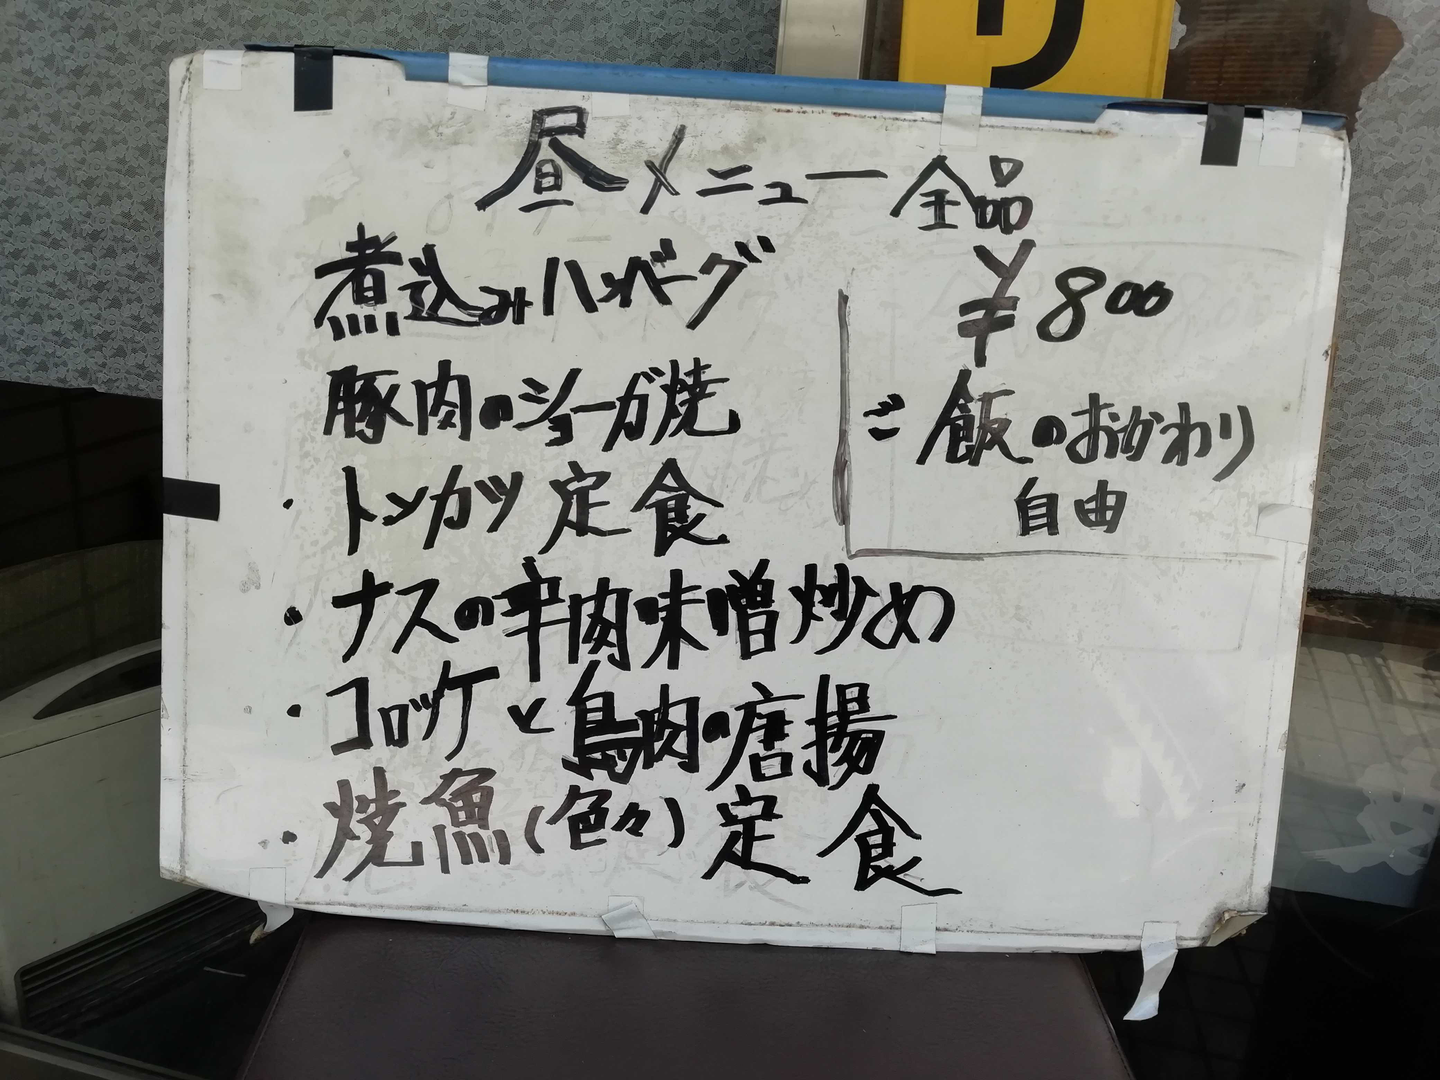 り
昼メニュー全品
¥800
煮込みハンバーグ
豚肉のショーガ焼
ご飯のおかわり
自由
・トンカツ定食
・ナスの辛肉味噌炒め
・コロッケと鳥肉の唐揚
・焼魚(色々)定食